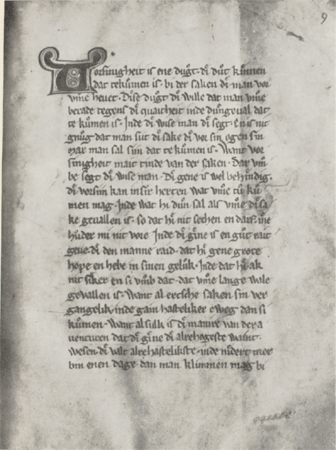 9
Vorsinigheit is ene duget di dut kunnen
dat tekumen is bi der saken di man vor
ume heuet Dise duget di wille dat man ume
berade tegens di quatheit inde dinge ual dat
te kumen is Inde di wise man di seget En is nit
gnug dat man sut di sake di vor sin ogen sin
mar man sal sun dat te kumen is Want vor
sinigheit mait tinde van der saken Dar um
be segt di wise man Di gene is wel behindig
di versun kan in sir herten wat ume tu ku
men mag Inde wat hi dun sal als ume di sa
ke geuallen is so dat hi nit sechen en darf ine
huder mi nit vore Inde di gine is en gut rait
geue di den manne raid dat hi gene grote
hope en hebe in sinen geluk Inde dat hi ak
nit seker en si umb dat dat ume lange wale
geuallen is Want al eertsche saken sin ver
gangelik inde gain hasteliker eweg dan si
kumen Want al silk is di manire van der a
uenturen dat di gine di alrehogeste waint
wesen di vilt alrehastelikste inde nidert mee
binnen enen dage dan man klimmen mag bi